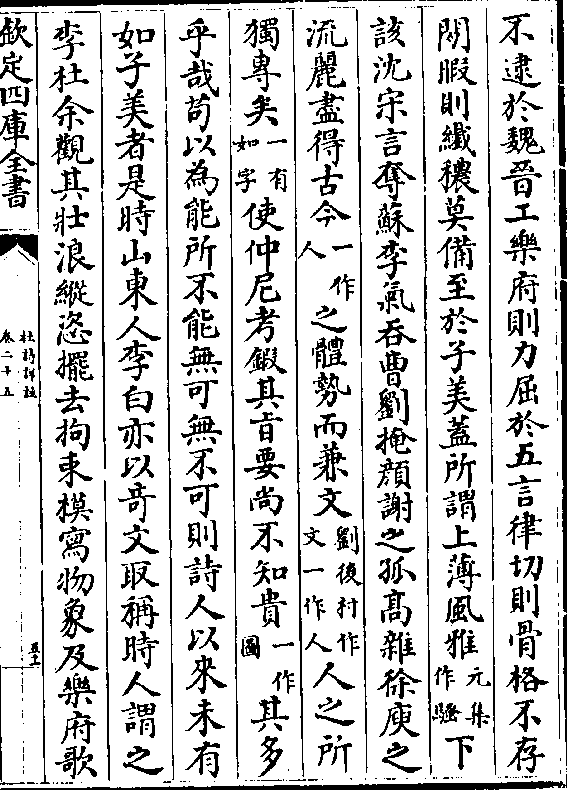 不逮於魏晉工樂府則力屈於五言律切則骨格不存
閒暇則纖穠莫備至於子美蓋所謂上薄風雅元集作騷下
該沈宋言奪蘇李氣吞曹劉掩顏謝之孤高雜徐庾之
流麗盡得古今一作人之體勢而兼文劉後村作文一作人人之所
獨專矣一有如字使仲尼考鍛其旨要尚不知貴一作圖其多
乎哉苟以為能所不能無可無不可則詩人以來未有
如子美者是時山東人李白亦以奇文取稱時人謂之
李杜余觀其壯浪縱恣擺去拘束模寫物象及樂府歌
欽定四庫全書
杜詩詳註
卷二十五